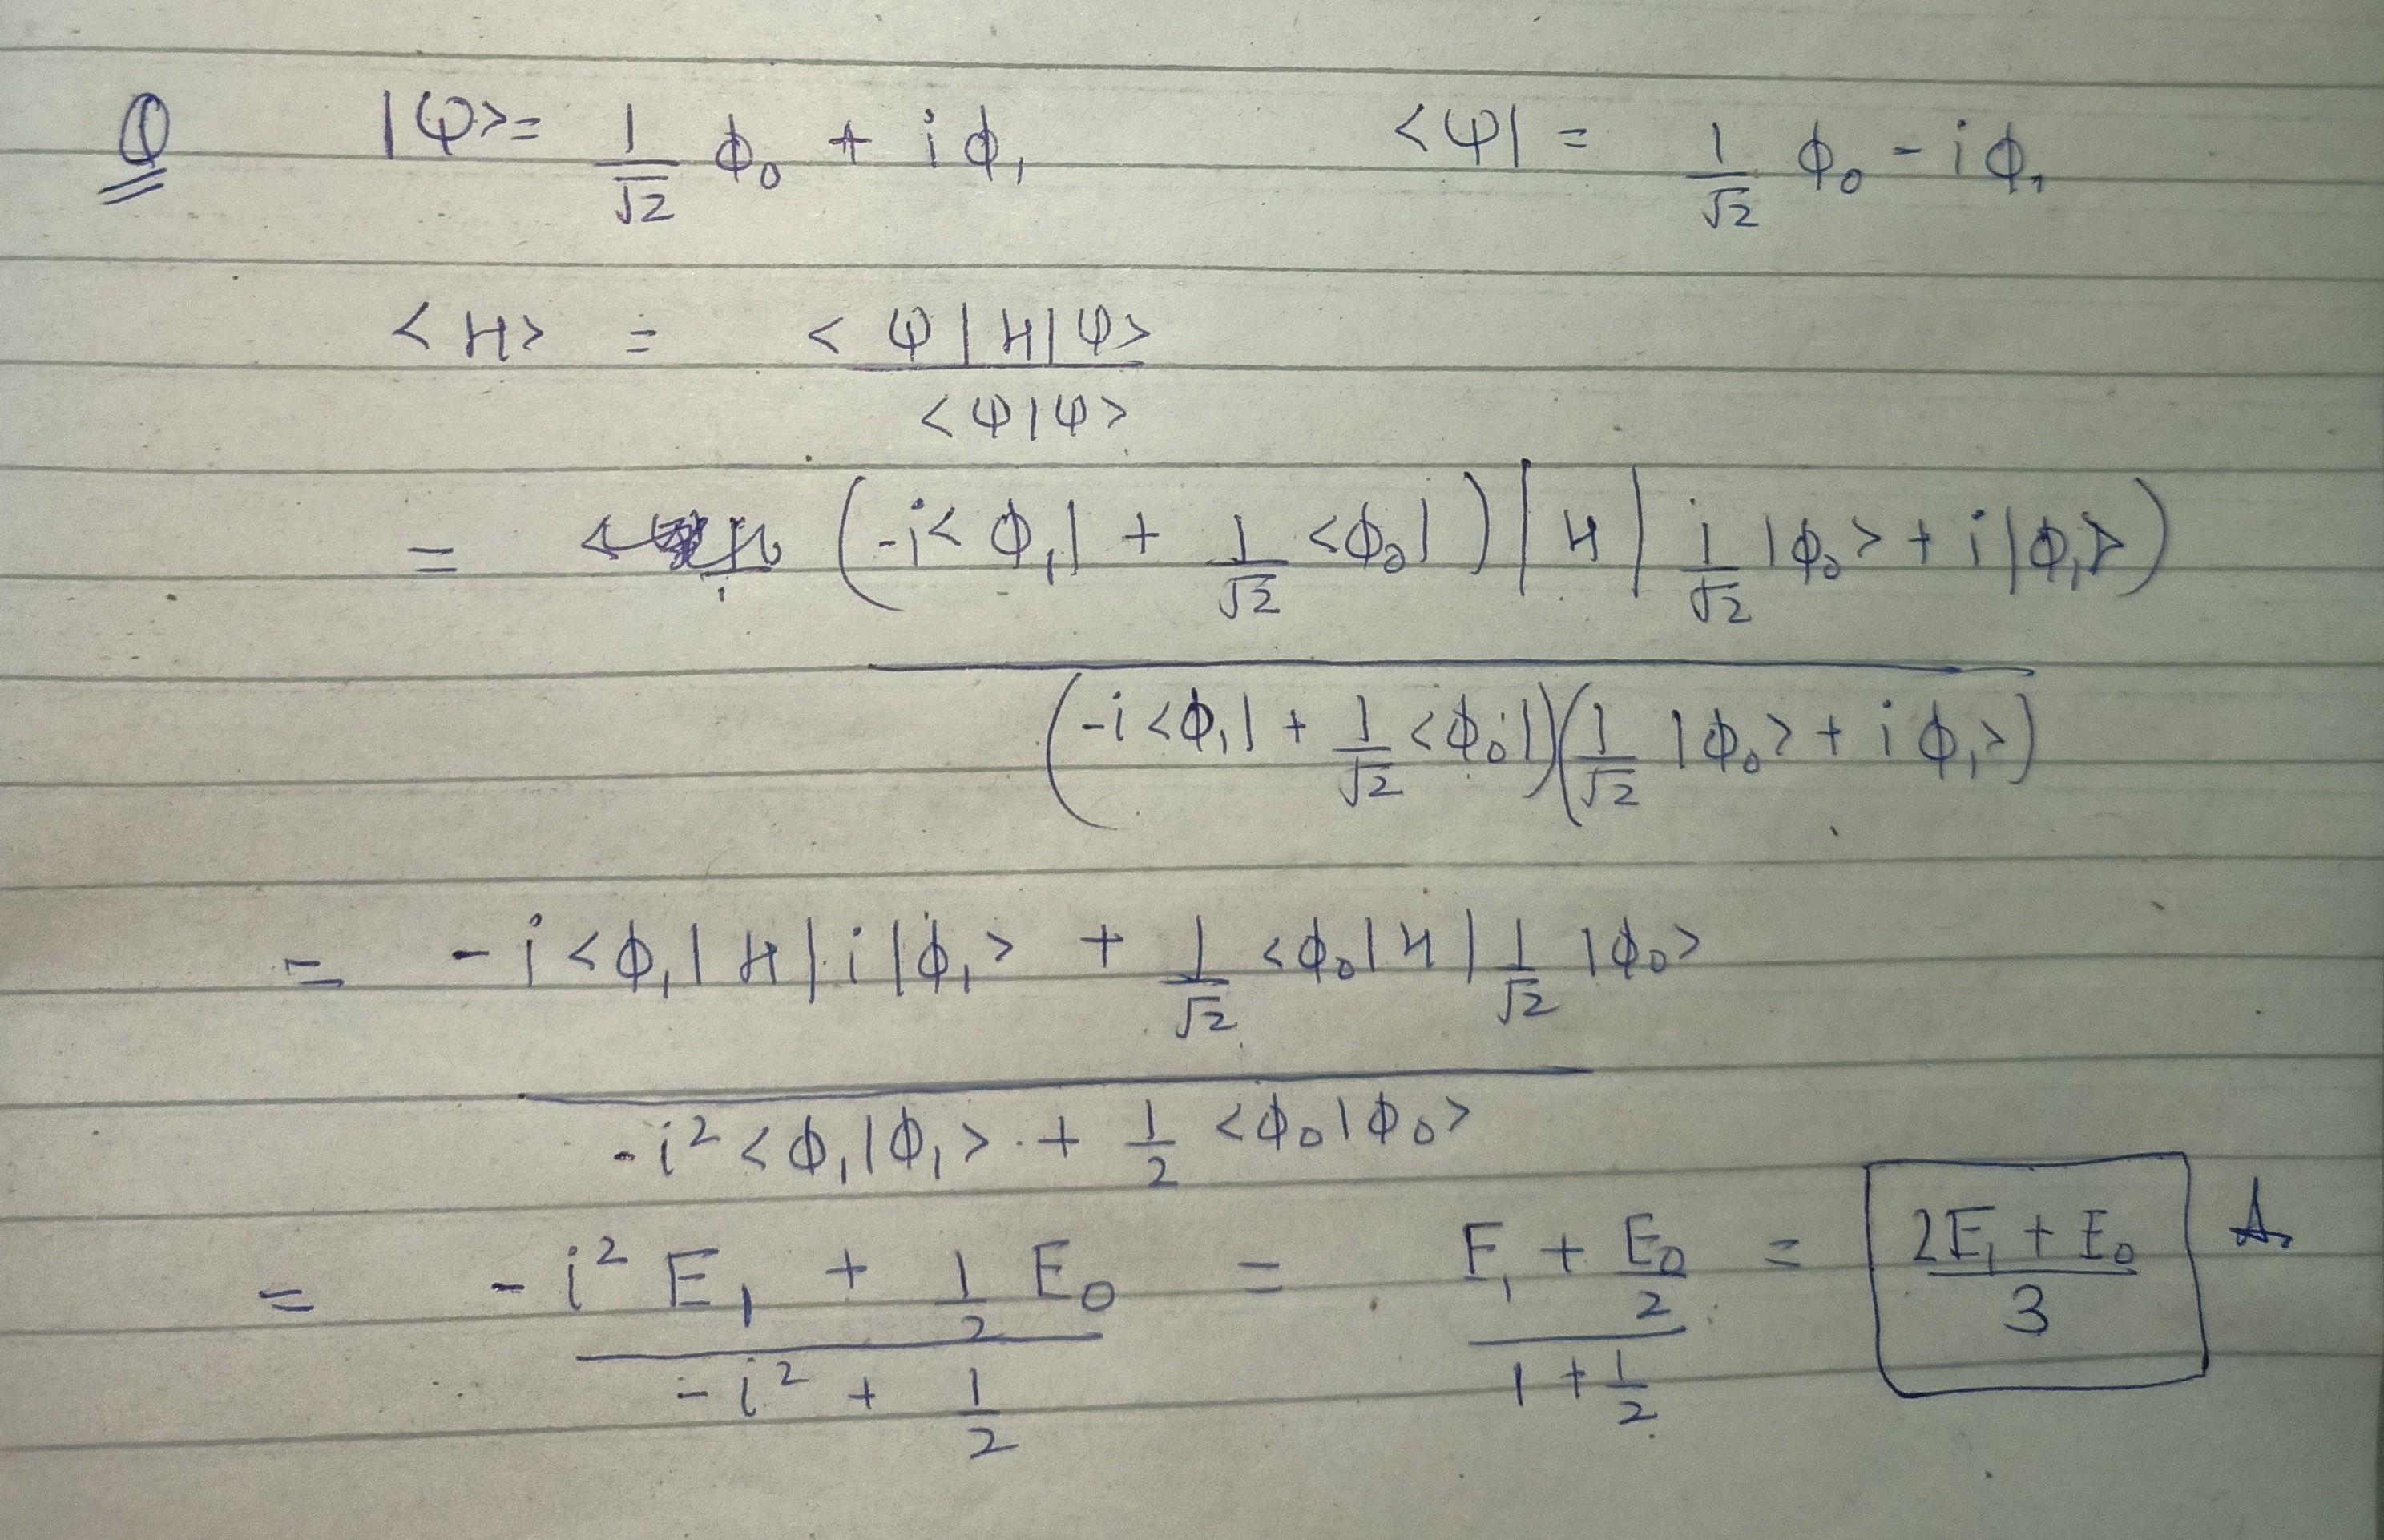 Q |ψ> = 1/√2 ϕ₀ + i ϕ₁ <ψ| = 1/√2 ϕ₀ - i ϕ₁
<H> = <ψ|H|ψ> / <ψ|ψ>
= (-i<ϕ₁| + 1/√2 <ϕ₀|) |H| 1/√2 |ϕ₀> + i|ϕ₁>)
(-i<ϕ₁| + 1/√2 <ϕ₀|)(1/√2 |ϕ₀> + i ϕ₁>)
= -i<ϕ₁|H|i|ϕ₁> + 1/√2 <ϕ₀|H|1/√2 |ϕ₀>
-i²<ϕ₁|ϕ₁> + 1/2 <ϕ₀|ϕ₀>
= (-i² E₁ + 1/2 E₀) / (-i² + 1/2) = (E₁ + E₀/2) / (1 + 1/2) = (2E₁ + E₀) / 3